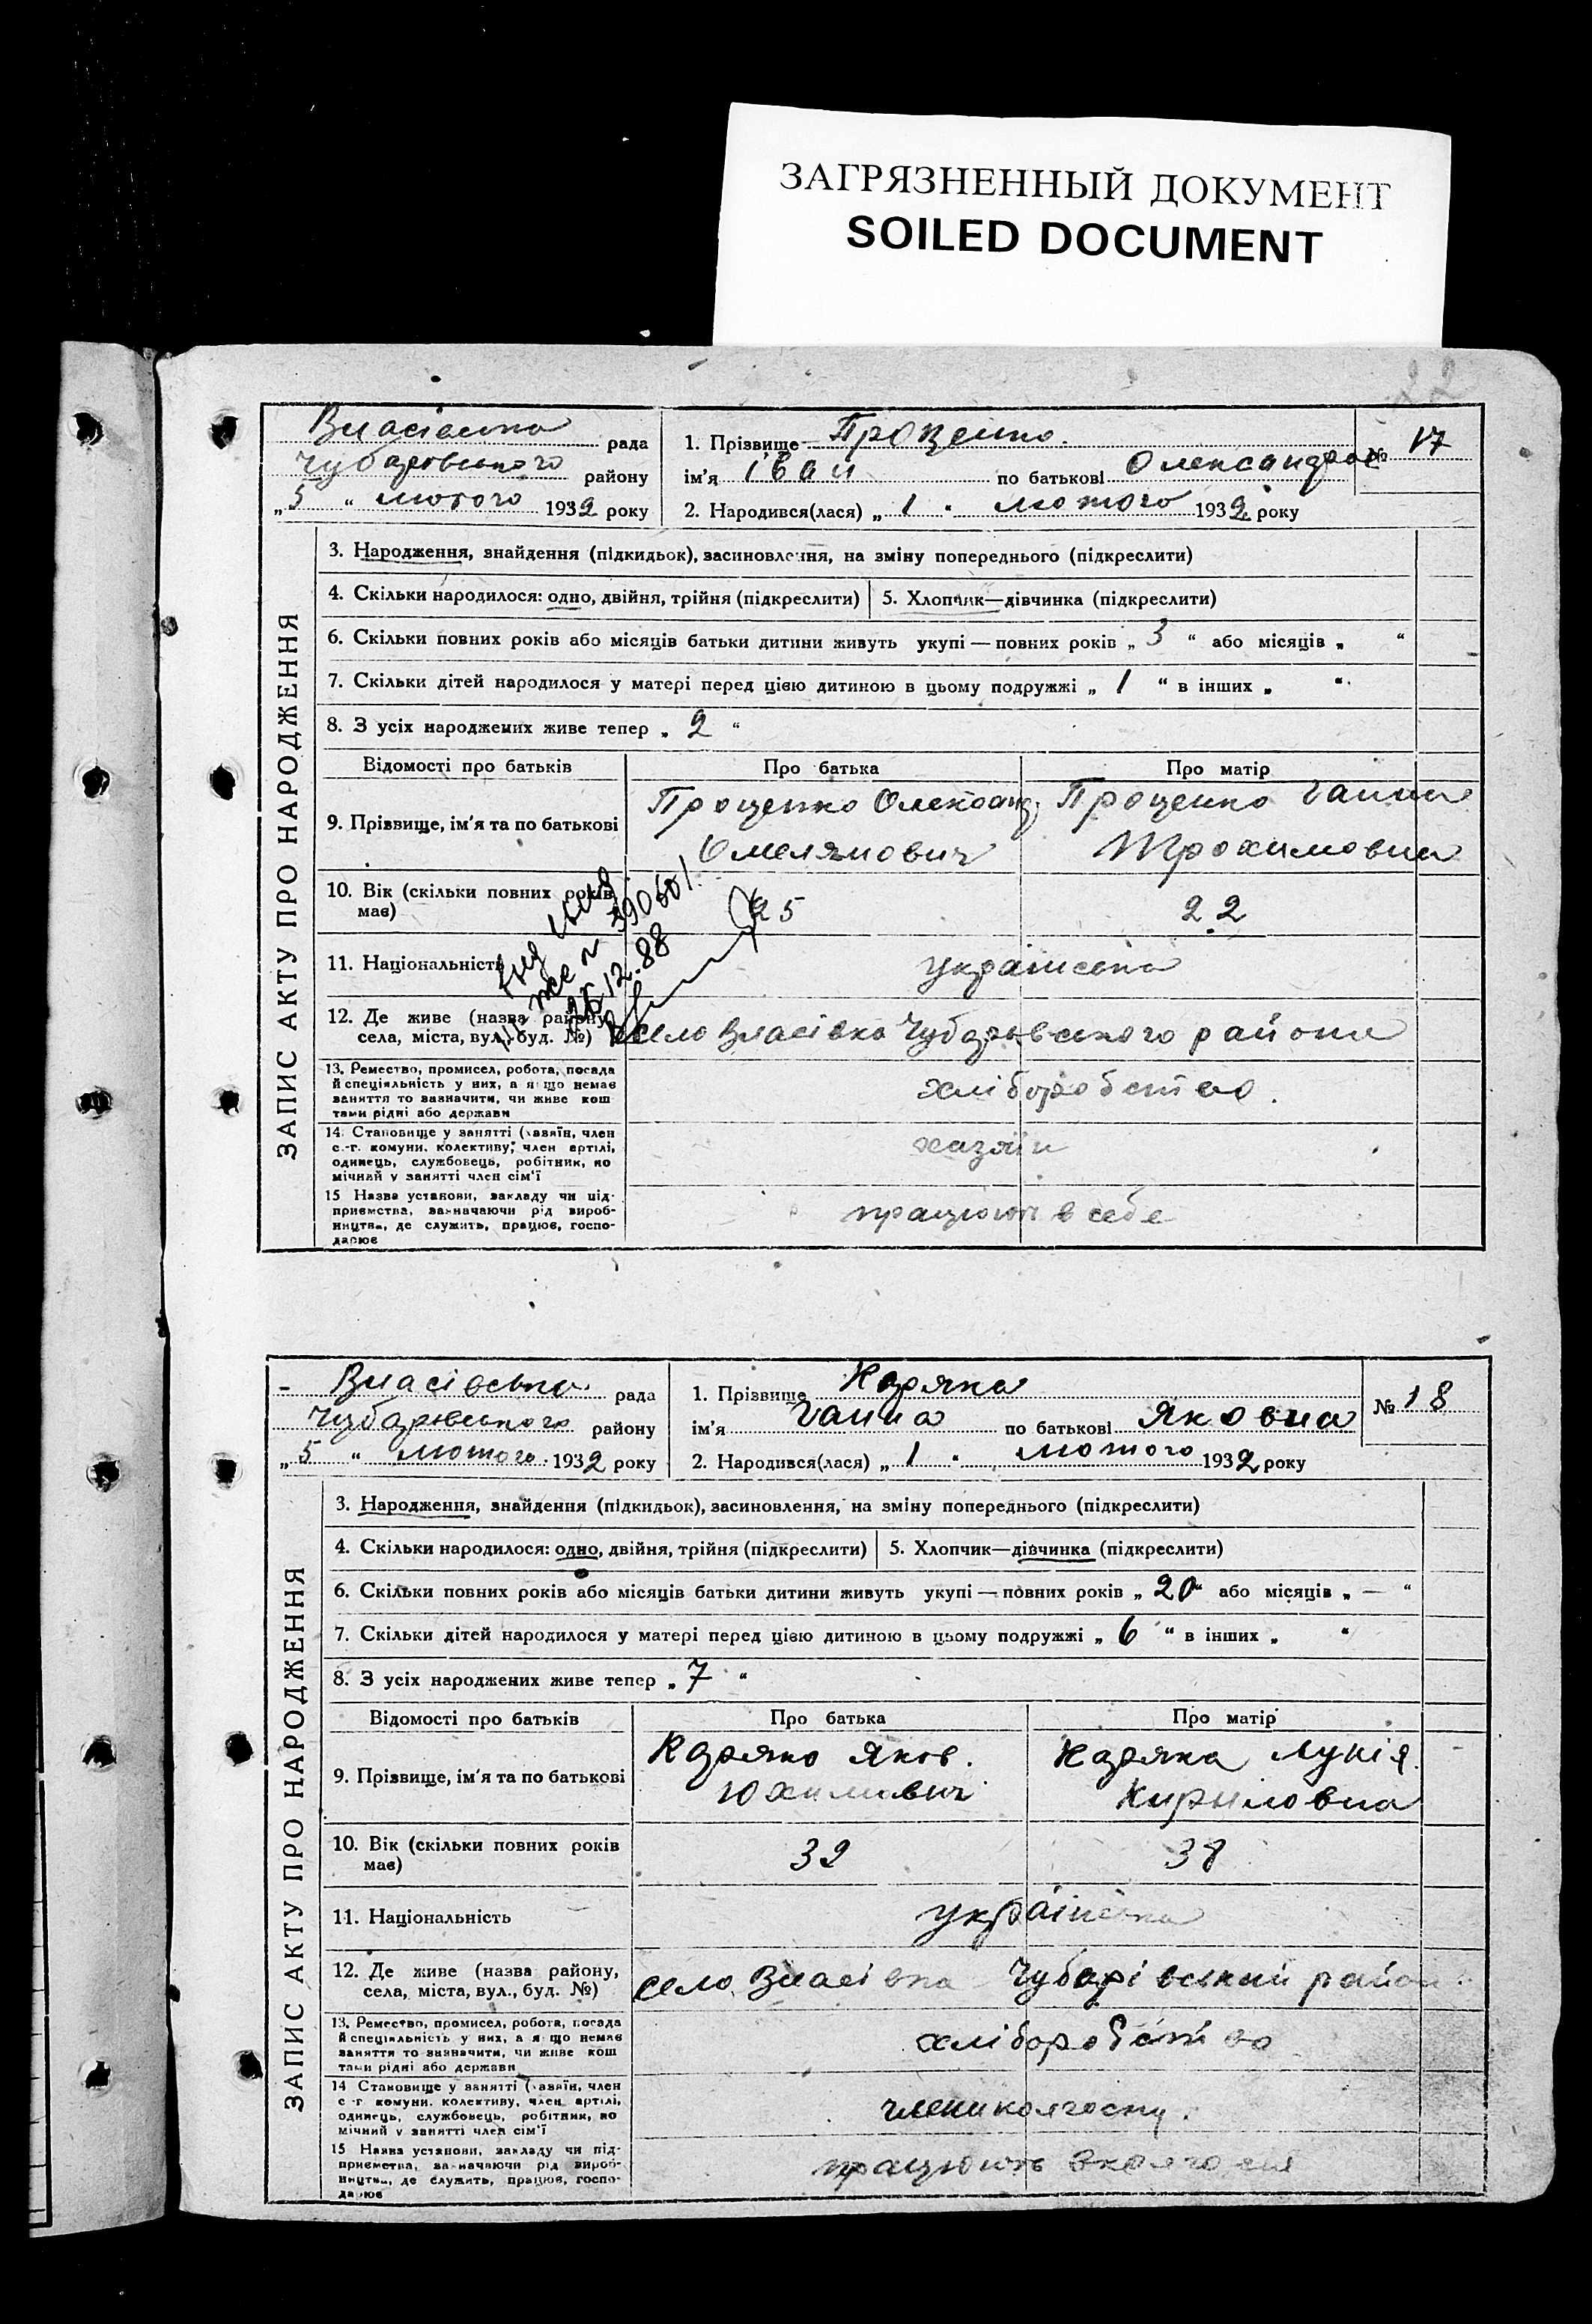 ЗАГРЯЗНЕННЫЙ ДОКУМЕНТ
SOILED DOCUMENT
22
ЗАПИС АКТУ ПРО НАРОДЖЕННЯ
Власівська рада
Чубарівського району
„5“ лютого 1932 року
1. Прізвище Проценко.
ім'я Іван по батькові Олександров
№ 17
2. Народився(лася) „1“ лютого 1932 року
3. Народження, знайдення (підкидьок), засиновлення, на зміну попереднього (підкреслити)
4. Скільки народилося: одно, двійня, трійня (підкреслити) 5. Хлопчик—дівчинка (підкреслити)
6. Скільки повних років або місяців батьки дитини живуть укупі — повних років „3“ або місяців „ “
7. Скільки дітей народилося у матері перед цією дитиною в цьому подружжі „1“ в інших „ “
8. З усіх народжених живе тепер „2“
Відомості про батьків Про батька Про матір
9. Прізвище, ім'я та по батькові
Проценко Олександ.
Омелянович
Проценко Ганна
Трохимовна
10. Вік (скільки повних років має) 25 22
390601
26.12.88
11. Національність українська
12. Де живе (назва району,
села, міста, вул., буд. №) село Власівка Чубарівського района
13. Ремество, промисел, робота, посада
й спеціяльність у них, а якщо немає
заняття то зазначити, чи живе кош
тами рідні або держави
хліборобство.
14. Становище у занятті (хазяїн, член
с.-г. комуни, колективу, член артілі,
одинець, службовець, робітник, по
мічний у занятті член сім'ї
хазяїн
15 Назва установи, закладу чи під-
приємства, зазначаючи рід вироб-
ництва, де служить, працює, госпо-
дарює
працюють в себе
ЗАПИС АКТУ ПРО НАРОДЖЕННЯ
Власівська рада
Чубарівського району
„5“ лютого 1932 року
1. Прізвище Каряка
ім'я Ганна по батькові Яковна
№ 18
2. Народився(лася) „1“ лютого 1932 року
3. Народження, знайдення (підкидьок), засиновлення, на зміну попереднього (підкреслити)
4. Скільки народилося: одно, двійня, трійня (підкреслити) 5. Хлопчик—дівчинка (підкреслити)
6. Скільки повних років або місяців батьки дитини живуть укупі — повних років „20“ або місяців „—“
7. Скільки дітей народилося у матері перед цією дитиною в цьому подружжі „6“ в інших „ “
8. З усіх народжених живе тепер „7“
Відомості про батьків Про батька Про матір
9. Прізвище, ім'я та по батькові
Каряка Яков.
Юхимович
Каряка Лукія.
Кириловна
10. Вік (скільки повних років має) 39 38
11. Національність українська
12. Де живе (назва району,
села, міста, вул., буд. №) село Власівка Чубарівський район
13. Ремество, промисел, робота, посада
й спеціяльність у них, а якщо немає
заняття то зазначити, чи живе кош
тами рідні або держави
хліборобство
14 Становище у занятті (хазяїн, член
с.-г. комуни, колективу, член артілі,
одинець, службовець, робітник, по
мічний у занятті член сім'ї
члени колгоспу.
15 Назва установи, закладу чи під-
приємства, зазначаючи рід вироб-
ництва, де служить, працює, госпо-
дарює
працюють в колгоспі